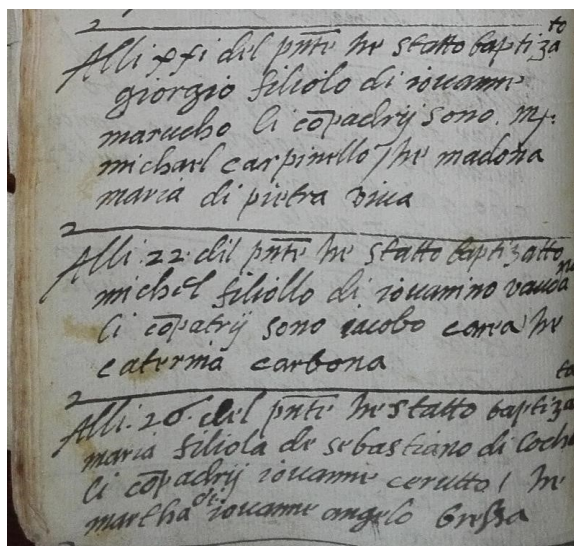 2
Alli xxi del pnte he statto baptiza to
giorgio filiolo di iouanne
marucho li cõpadrij sono. mr.
michael carpinello / he madona
maria di pietra viva
2
Alli. 22. dil pnte he statto baptizatto
michel filiollo di iouanino
li cõpatrij sono iacobo carea he
caterina carbona
2
Alli. 26. del pnte he statto baptiza ta
maria filiola de sebastiano di
li cõpadrij iouanne cerutto / he
martha de iouanne angelo bressa